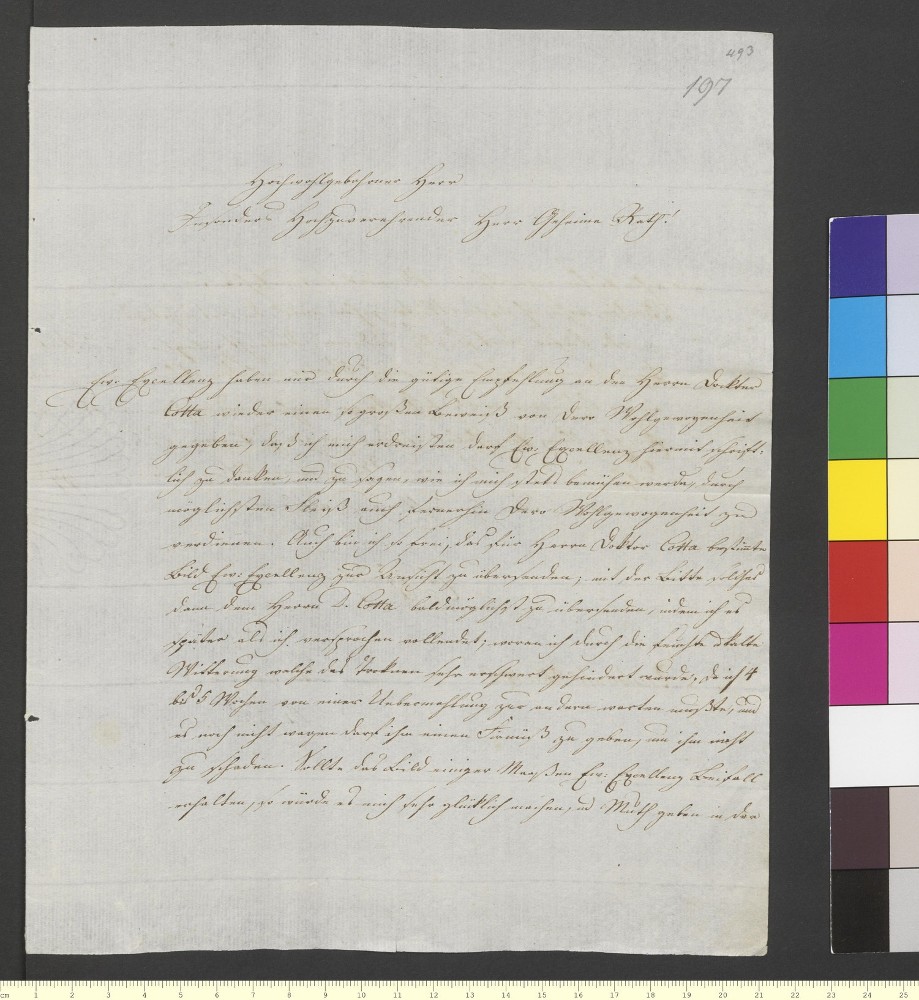 493
197
Hochwohlgebohrner Herr
Insonders Hochzuverehrender Herr Geheime Rath!
Ew: Excellenz haben mir durch die gütige Empfehlung an den Herrn Docktor
Cotta wieder einen so großen Beweiß von Dero Wohlgewogenheit
gegeben, daß ich mich erdreisten darf Ew: Excellenz hiermit schrift-
lich zu danken, und zu sagen, wie ich mich stets bemühen werde, durch
möglichsten Fleiß auch fernerhin Dero Wohlgewogenheit zu
verdienen. Auch bin ich so frei, das für Herrn Doktor Cotta bestimte
Bild Ew: Excellenz zur Ansicht zu übersenden; mit der Bitte solches
dann dem Herrn D. Cotta baldmöglichst zu übersenden, indem ich es
später als ich versprochen vollendet; woran ich durch die feuchte kalte
Witterung welche das Trocknen sehr erschwert gehindert wurde, da ich 4
bis 5 Wochen von einer Uebermahlung zur andern warten mußte, und
es noch nicht wagen darf ihm einen Firniß zu geben, um ihm nicht
zu schaden. Sollte das Bild einiger Maaßen Ew: Excellenz Beifall
erhalten, so würde es mich sehr glücklich machen, u Muth geben in der